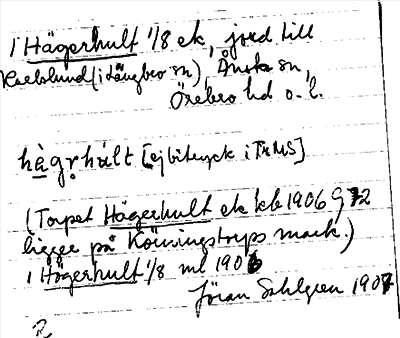 1 Hägerhult 1/8 ek, jord till
Karlslund (i Längbro sn), Ånsta sn,
Örebro hd o. l.
hàgṛhúlt [ej bitryck i
(Torpet Hägerhult ek kb 1906 G 72
ligger på Körsingstorps mark.)
1 Högerhult 1/8 ml 1906
Jöran Sahlgren 1907
2